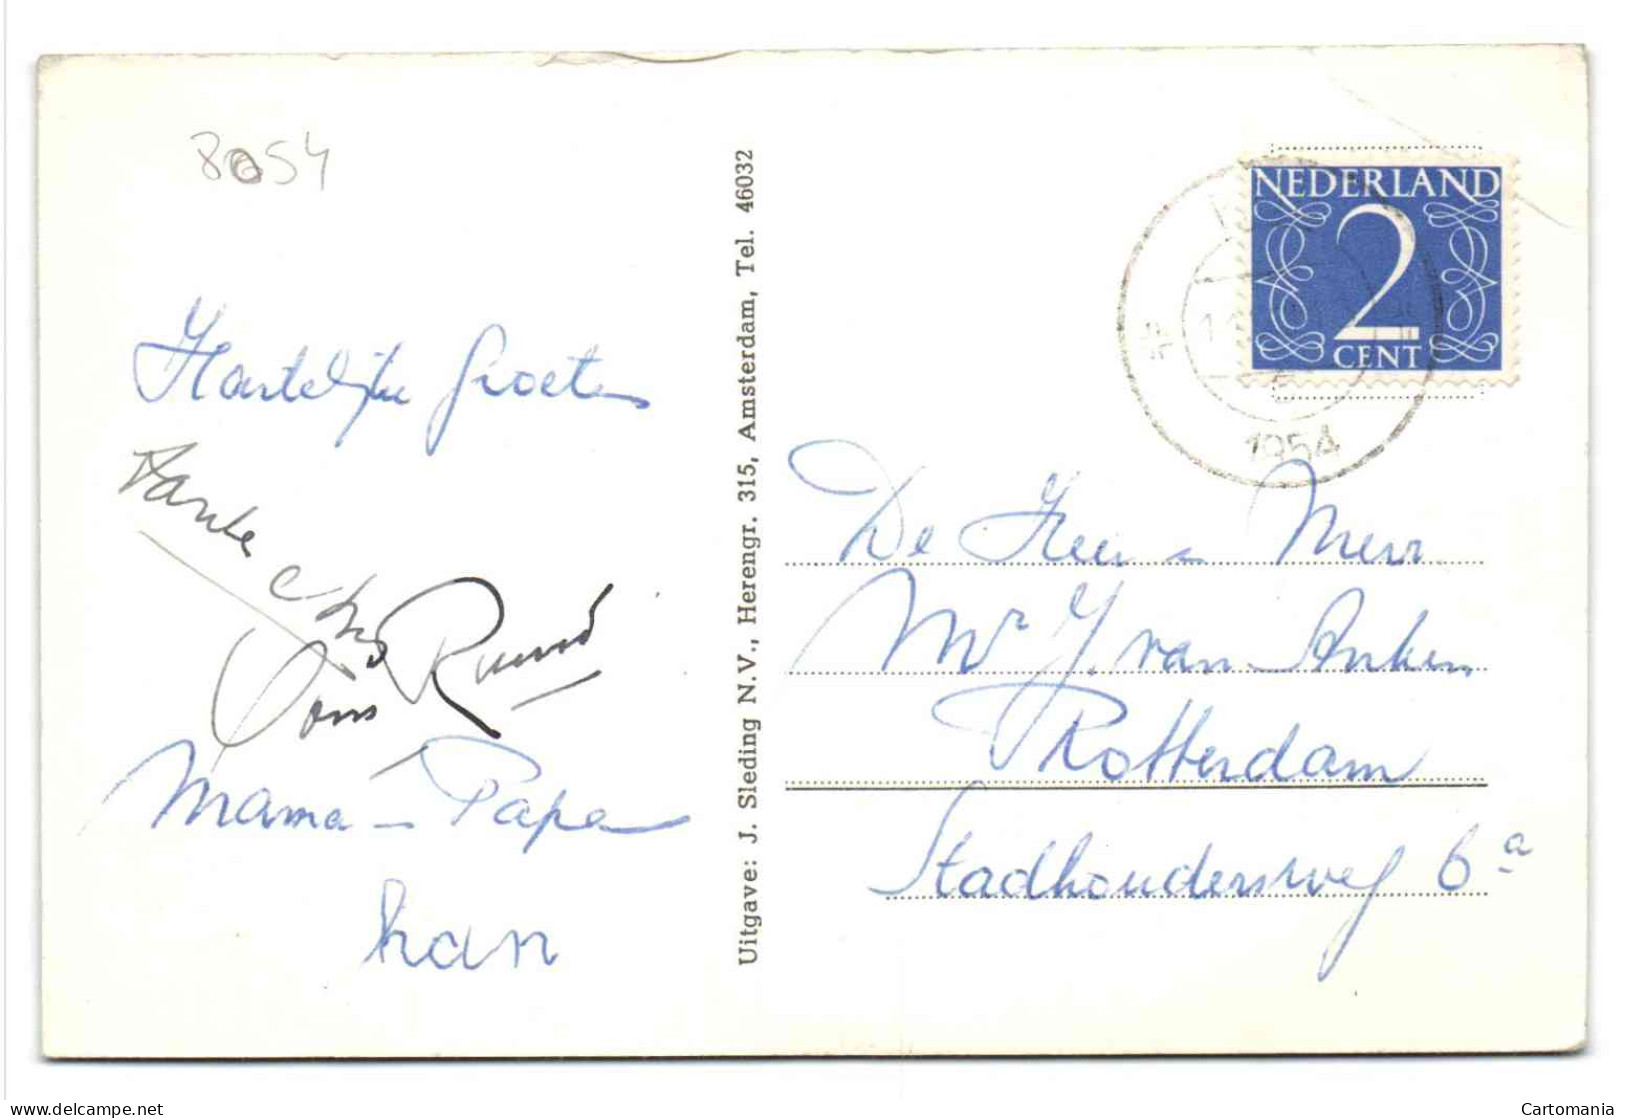 8054
Hartelijke Groeten
Tante
Ruud
Mama - Papa
han
Uitgave: J. Sleding N.V., Herengr. 315, Amsterdam, Tel. 46032
NEDERLAND
2
CENT
1954
De Heer - Mevr
Mr J. van Anken
Rotterdam
Stadhoudersweg 6a
Cartomania